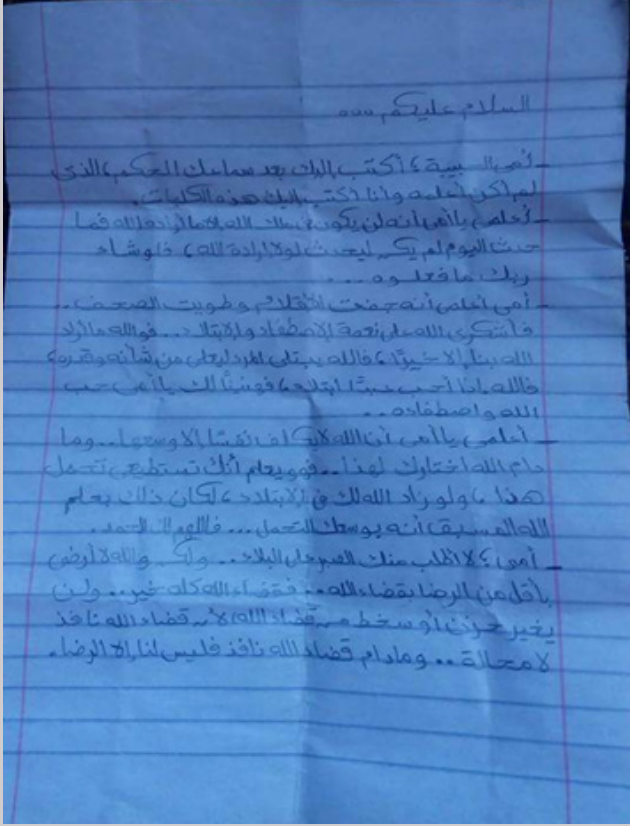 السلام عليكم ...
- أمى الحبيبة، أكتب إليك بعد سماعك الحكم، الذى
لم أكن أعلمه وأنا أكتب إليك هذه الكلمات.
- أعلمى يا أمى أنه لن يكون فى ملك الله إلا ما أراده الله فما
حدث اليوم لم يكن ليحدث لولا إرادة الله، فلو شاء
ربك ما فعلوه ...
- أمى أعلمى أنه جفت الأقلام وطويت الصحف ..
فأشكرى الله على نعمة الإصطفاء والإبتلاء.. فوالله ما أراد
الله بنا إلا خيرًا، فالله يبتلى المرء ليعلى من شأنه وقدره،
فالله إذا أحب عبدًا ابتلاه، فهنيئًا لك يا أمى حب
الله واصطفاءه ..
- أعلمى يا أمى أن الله لا يكلف نفسًا إلا وسعها .. وما
دام الله اختارك لهذا .. فهو يعلم أنك تستطيعى تحمل
هذا، ولو زاد الله لك فى الإبتلاء، لكان ذلك بعلم
الله المسبق أنه بوسعك التحمل ... فاللهم لك الحمد.
- أمى، لا أطلب منك الصبر على البلاء .. ولكن والله لا أرضى
بأقل من الرضا بقضاء الله .. فقضاء الله كله خير .. ولن
يغير حزن أو سخط من قضاء الله، لأن قضاء الله نافذ
لا محالة .. ومادام قضاء الله نافذ فليس لنا إلا الرضا.